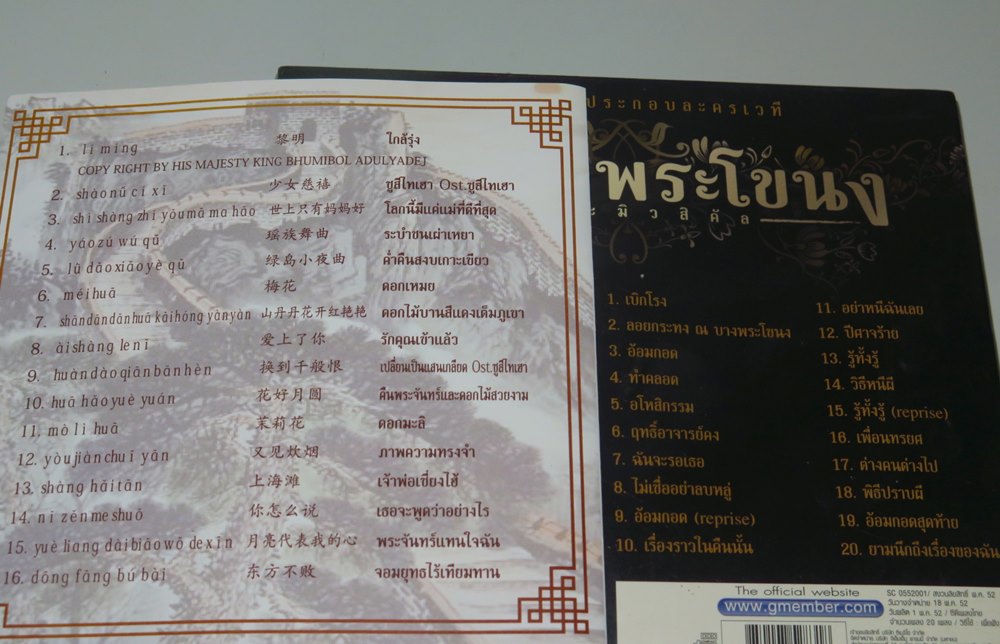 1. lí míng 黎明 ใกล้รุ่ง
COPY RIGHT BY HIS MAJESTY KING BHUMIBOL ADULYADEJ
2. shàonǚ cí xǐ 少女慈禧 ซูสีไทเฮา Ost.ซูสีไทเฮา
3. shì shàng zhǐ yǒu mā ma hǎo 世上只有妈妈好 โลกนี้มีแค่แม่ที่ดีที่สุด
4. yáozú wǔ qǔ 瑶族舞曲 ระบำชนเผ่าเหยา
5. lǜ dǎo xiǎo yè qǔ 绿岛小夜曲 ค่ำคืนสงบเกาะเขียว
6. méi huā 梅花 ดอกเหมย
7. shāndāndānhuā kāihóng yànyàn 山丹丹花开红艳艳 ดอกไม้บานสีแดงเต็มภูเขา
8. ài shàng le nǐ 爱上了你 รักคุณเข้าแล้ว
9. huàn dào qiān bān hèn 换到千般恨 เปลี่ยนเป็นแสนเกลียด Ost.ซูสีไทเฮา
10. huā hǎo yuè yuán 花好月圆 คืนพระจันทร์และดอกไม้สวยงาม
11. mò lì huā 茉莉花 ดอกมะลิ
12. yòu jiàn chuī yān 又见炊烟 ภาพความทรงจำ
13. shàng hǎi tān 上海滩 เจ้าพ่อเซี่ยงไฮ้
14. nǐ zěn me shuō 你怎么说 เธอจะพูดว่าอย่างไร
15. yuè liang dài biǎo wǒ de xīn 月亮代表我的心 พระจันทร์แทนใจฉัน
16. dōng fāng bú bài 东方不败 จอมยุทธไร้เทียมทาน
ประกอบละครเวที
พระโขนง
มิวสิคัล
1. เบิกโรง
2. ลอยกระทง ณ บางพระโขนง
3. อ้อมกอด
4. ทำคลอด
5. อโหสิกรรม
6. ฤทธิ์อาจารย์คง
7. ฉันจะรอเธอ
8. ไม่เชื่ออย่าลบหลู่
9. อ้อมกอด (reprise)
10. เรื่องราวในคืนนั้น
11. อย่าหนีฉันเลย
12. ปีศาจร้าย
13. รู้ทั้งรู้
14. วิธีหนีผี
15. รู้ทั้งรู้ (reprise)
16. เพื่อนทรยศ
17. ต่างคนต่างไป
18. พิธีปราบผี
19. อ้อมกอดสุดท้าย
20. ยามนึกถึงเรื่องของฉัน
The official website
www.gmember.com
SC 0552001/ สงวนลิขสิทธิ์ พ.ค. 52
วันวางจำหน่าย 18 พ.ค. 52
วันผลิต 1 พ.ค. 52 / ซีดีเพลงไทย
จำนวนเพลง 20 เพลง / วิธีใช้ เพื่อฟัง